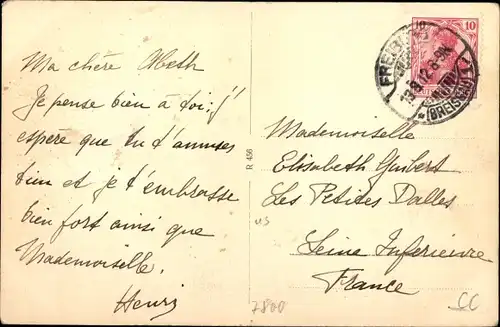 Ma chère
Je pense bien à toi; j'
espère que tu t'amuses
bien et je t'embrasse
bien fort ainsi que
Mademoiselle.
Henri
R 456
10
FREIBURG
(BREISGAU)
Mademoiselle
Elisabeth Guibert
Les Petites Dalles
Seine Inférieure
France
7800
CC